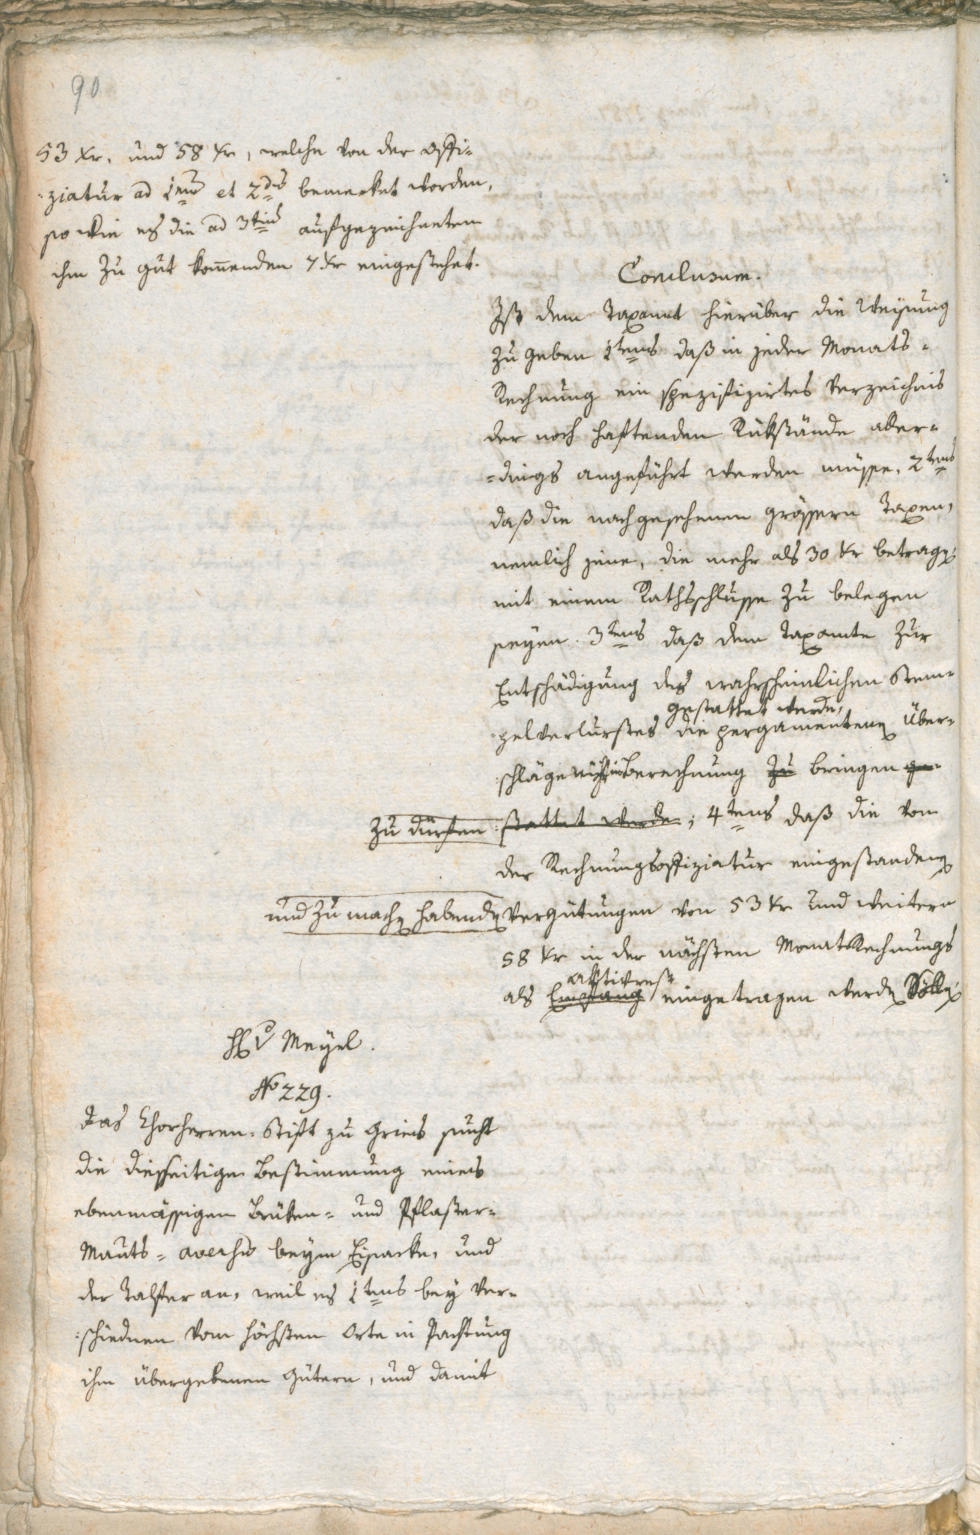 90
53 Xr. und 58 Xr, welche von der Offi-
ziatur ad 1mū et 2dū bemerket worden,
so wie es die ad 3tiū aufgezeichneten
ihm zu gut kom̄enden 7 Xr eingestehet.
Conclusum.
Ist dem Taxamt hierüber die Weisung
zu geben 1tens daß in jeder Monats-
Rechnung ein spezifizirtes Verzeichnis
der noch haftenden Rükstände aller-
-dings angeführt werden müsse, 2tens
daß die nachgesehenen grössern Taxen,
nemlich jene, die mehr als 30 Xr betragen
mit einem Rathsschlusse zu belegen
seyen. 3tens daß dem Taxamte zur
Entschädigung des wahrscheinlichen Stem-
gestattet werde,
pelverlurstes die pergamentenen Über-
schläge Berechnung zu bringen ge-
zu dürfen stattet werde; 4tens daß die von
der Rechnungsoffiziatur eingestandenen
und zu machen habenden Vergütungen von 53 Xr und weitern
58 Xr in der nächsten Monats Rechnungs
aktivrest
als Empfang eingetragen werden sollen.
H v Meyel.
No 229.
Das Chorherren-Stift zu Gries sucht
die diesseitige Bestimmung eines
ebenmässigen Brüken- und Pflaster-
Mauts- aversū beym Eisacke, und
der Talfer an, weil es 1tens bey ver-
schiednen vom höchsten Orte in Pachtung
ihm übergebenen Gütern, und damit